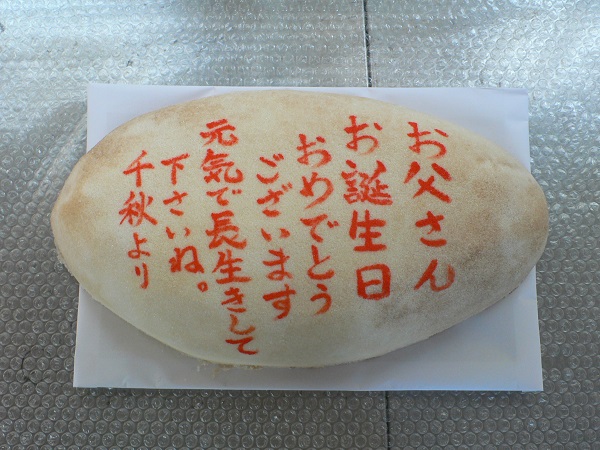 お父さん
お誕生日
おめでとう
ございます
元気で長生きして
下さいね。
千秋より